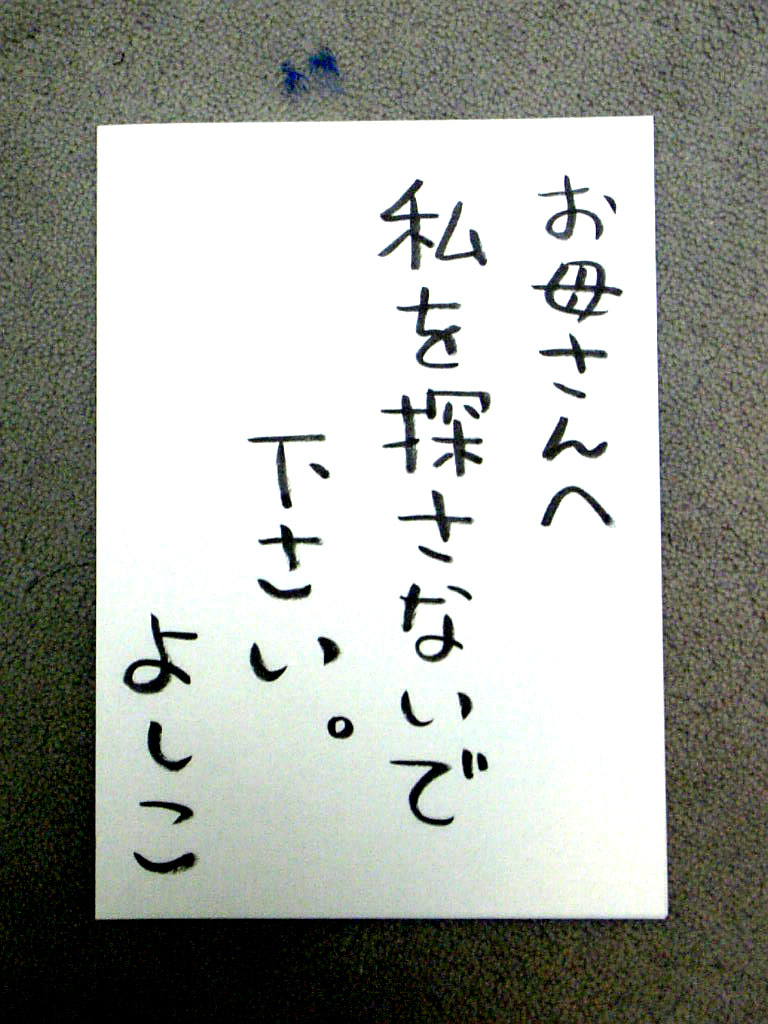 お母さんへ
私を探さないで
下さい。
よしこ